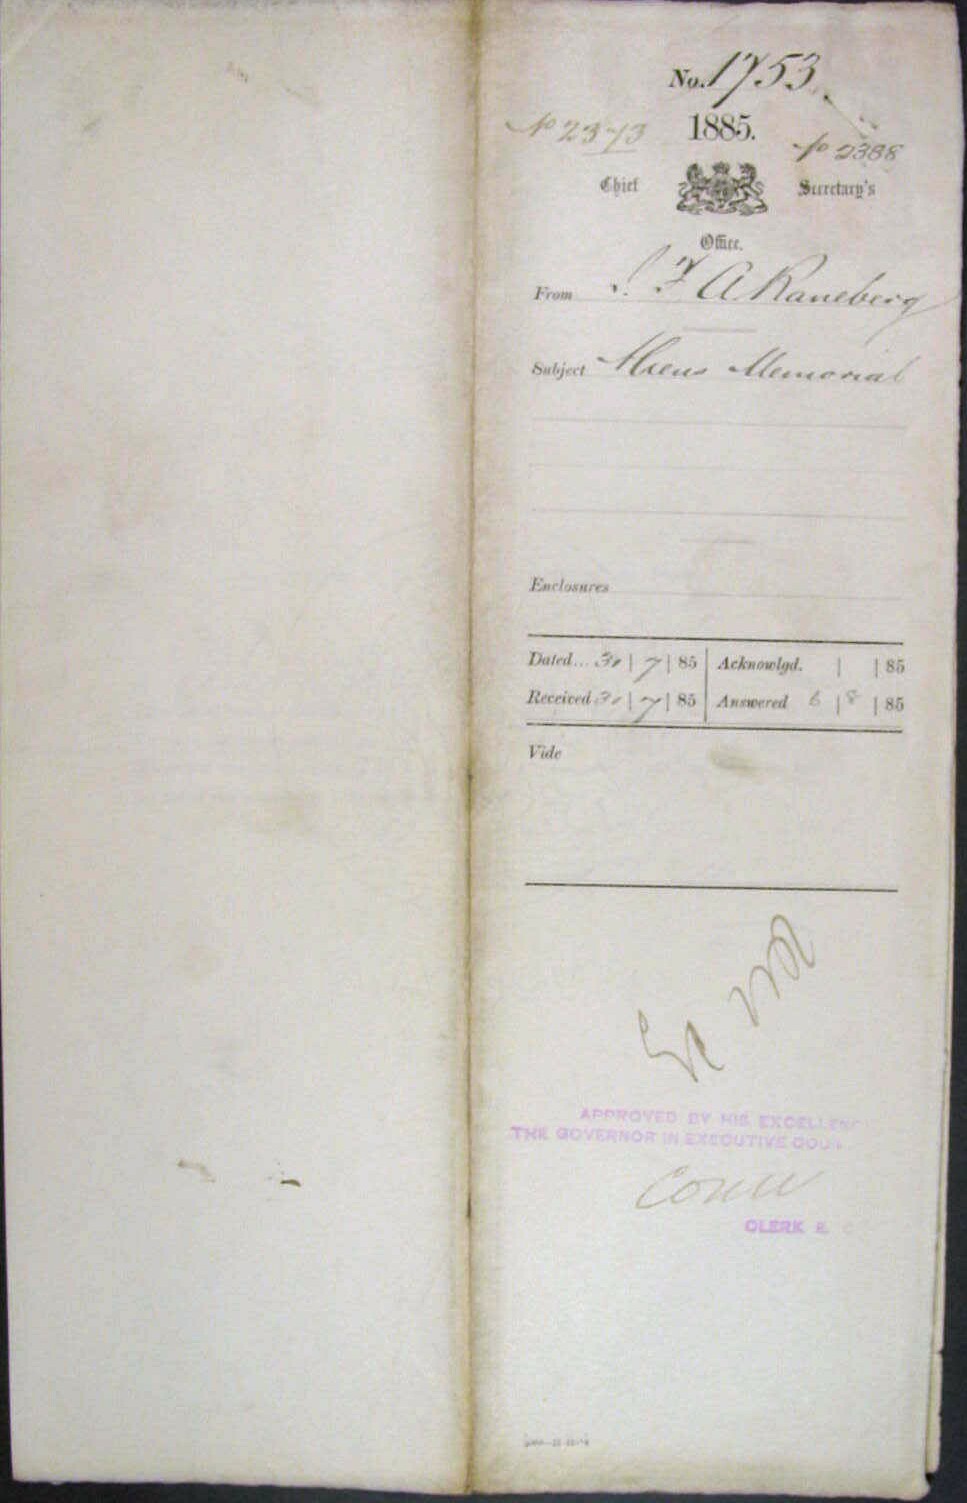 No. 1753
No 2373 1885. No 2388
Chief Secretary's
Office.
From A Raneberg
Subject Aliens Memorial
Enclosures
Dated... 30 | 7 | 85 Acknowlgd. | | 85
Received 30 | 7 | 85 Answered 6 | 8 | 85
Vide
APPROVED BY HIS EXCELLENC
THE GOVERNOR IN EXECUTIVE COUN
CLERK E. C